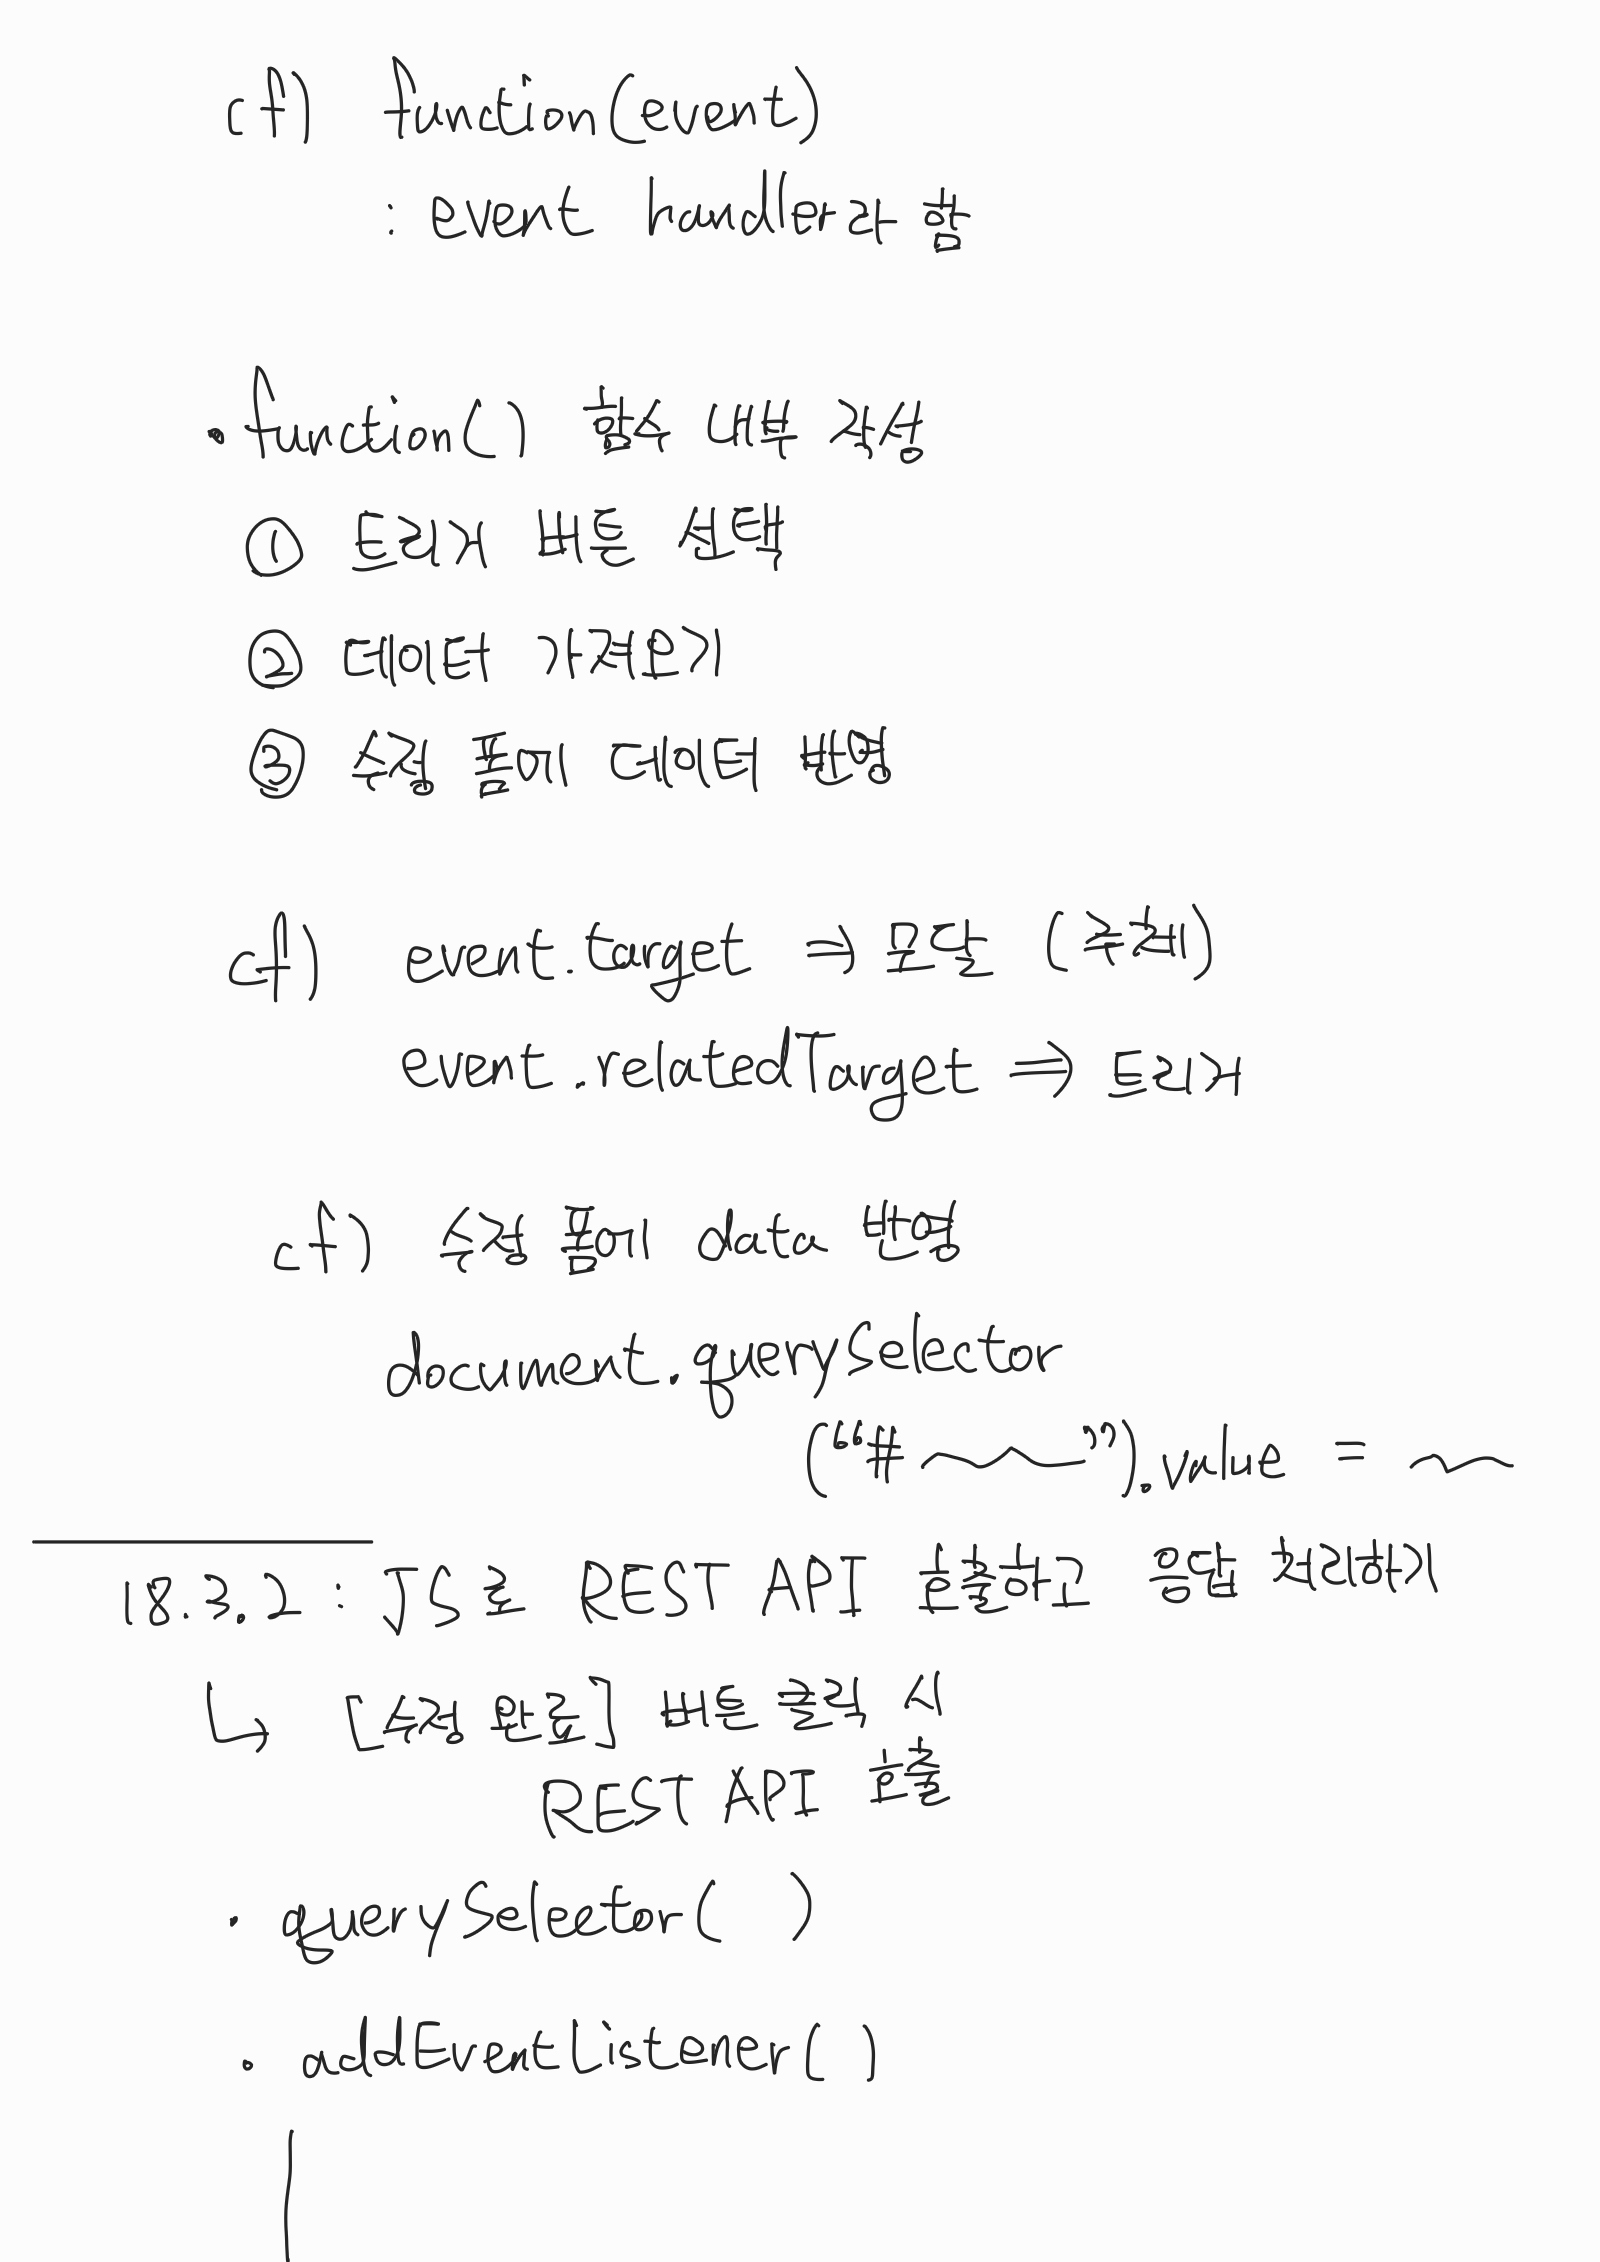 cf) function(event)
: event handler라 함
• function() 함수 내부 작성
① 트리거 버튼 선택
② 데이터 가져오기
③ 수정 폼에 데이터 반영
cf) event.target ⇒ 모달 (주체)
event.relatedTarget ⇒ 트리거
cf) 수정 폼에 data 반영
document.querySelector
("# ~~~").value = ~~
18.3.2 : JS로 REST API 호출하고 응답 처리하기
↳ [수정 완료] 버튼 클릭 시
REST API 호출
• querySelector( )
• addEventListener( )